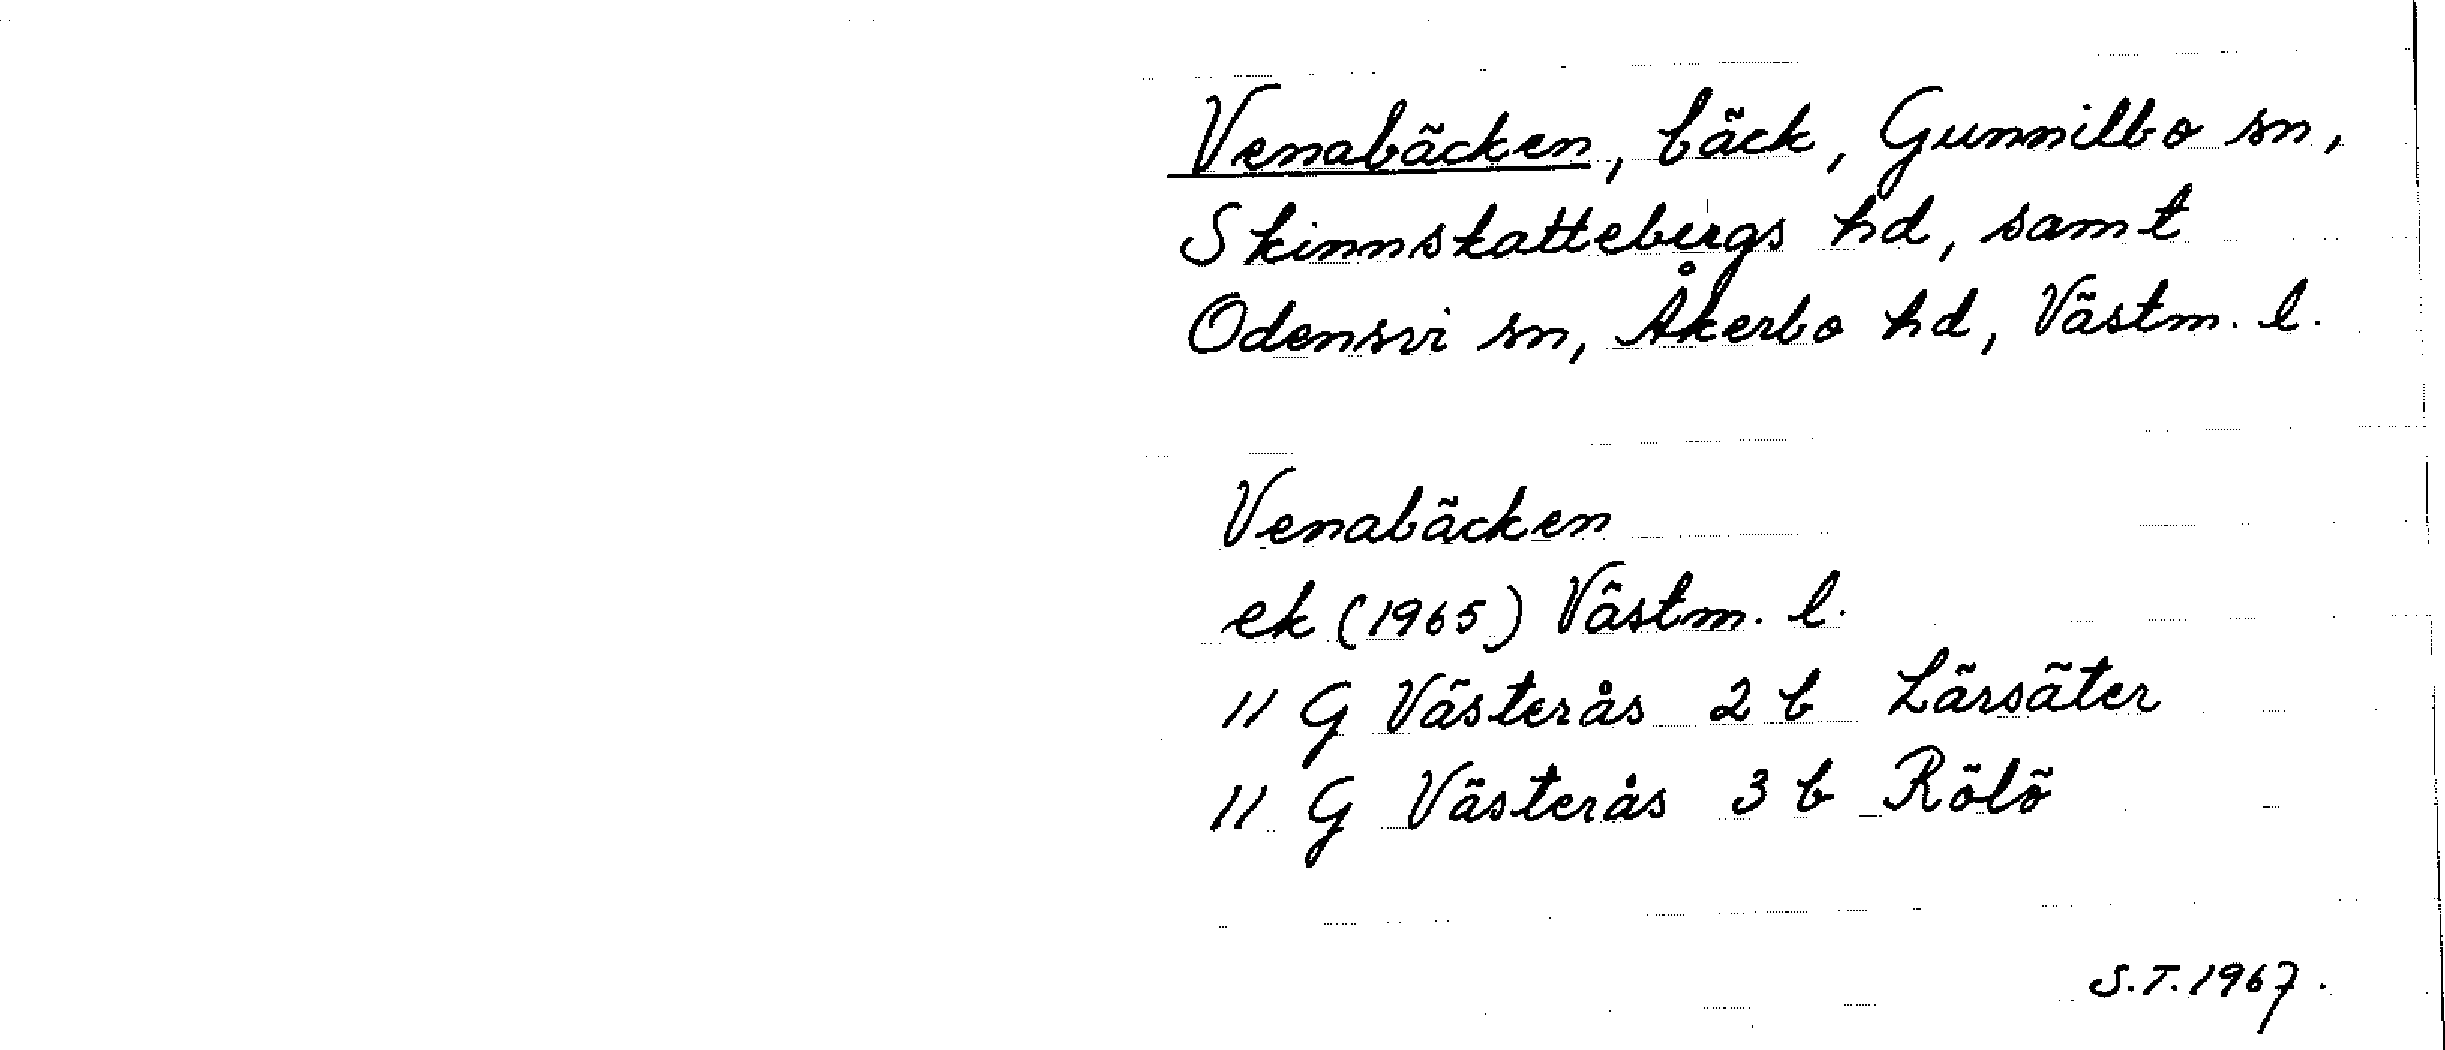 Venabäcken, bäck, Gunnilbo sn,
Skinnskattebergs hd, samt
Odensvi sn, Åkerbo hd, Västm. l.
Venabäcken
ek (1965) Västm. l.
11 G Västerås 2 b Lärsäter
11 G Västerås 3 b Rölö
S.T. 1967.